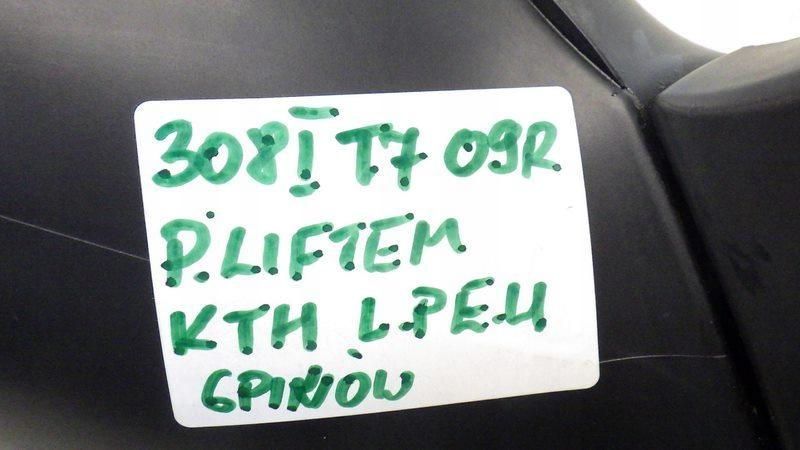 308I T7 09R
P.LIFTEM
KTH L.PEŁ
6PINÓW